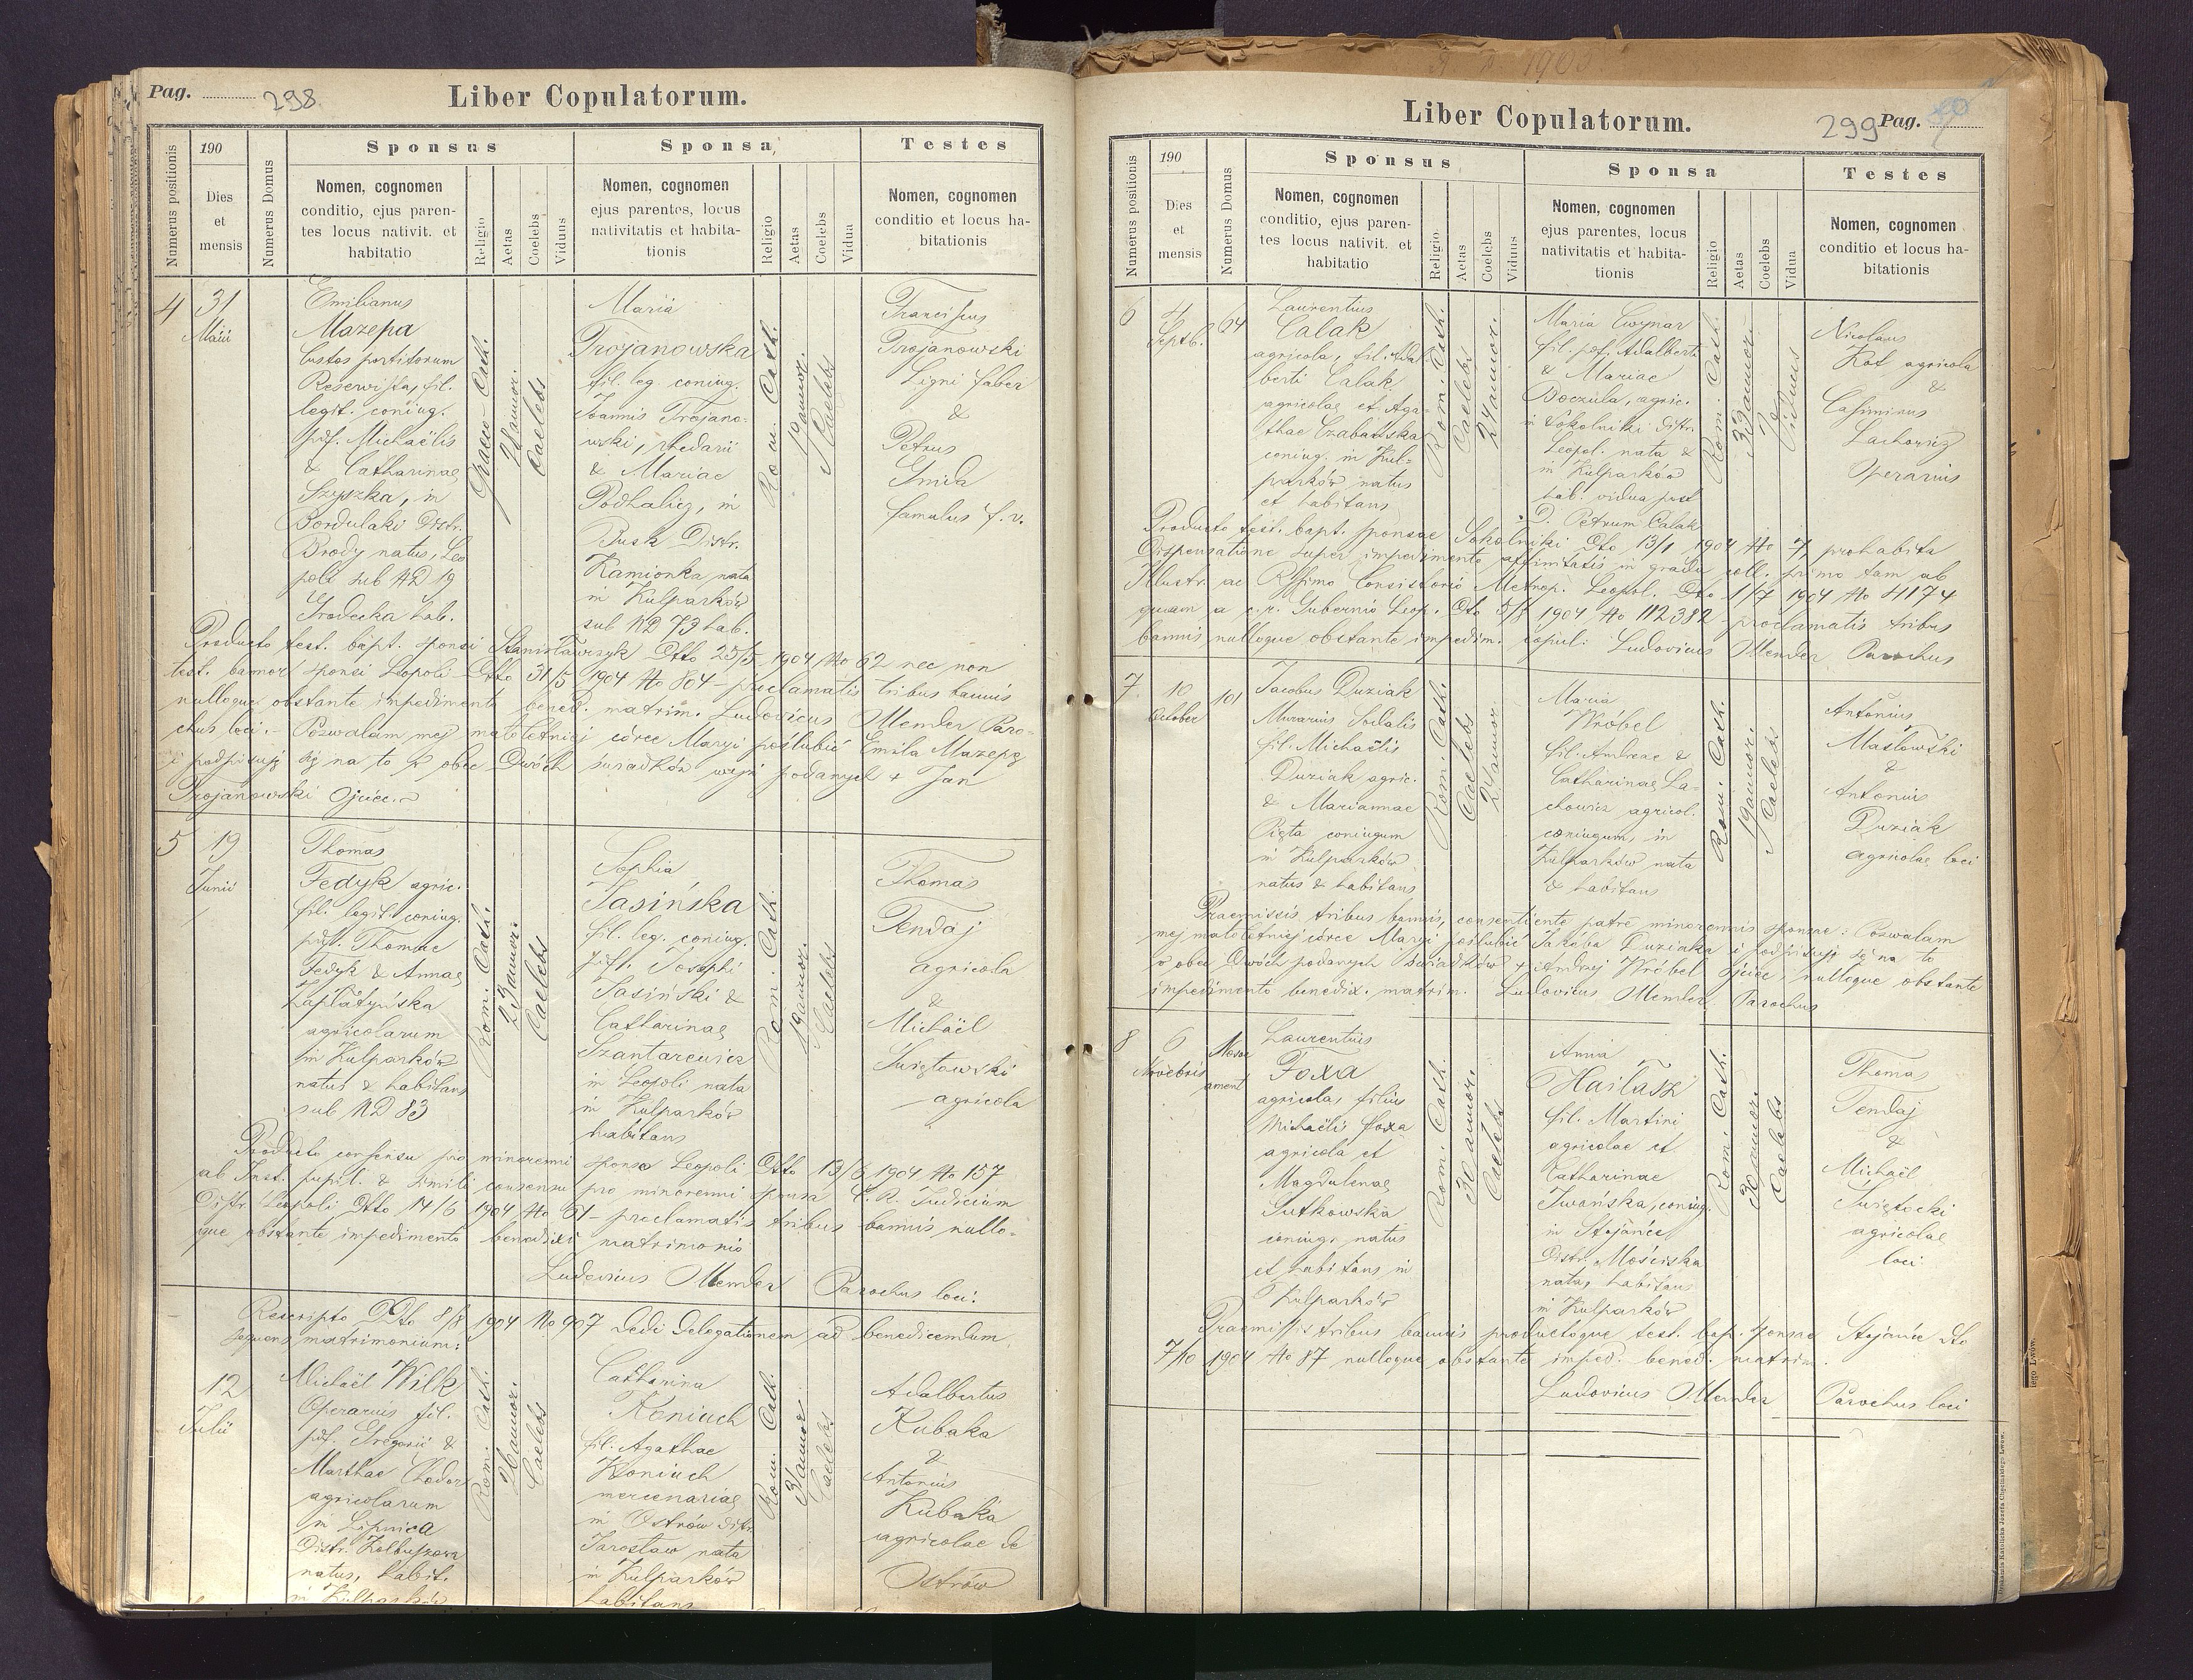 Pag. 298
Liber Copulatorum.
Numerus positionis
190
Dies
et
mensis
Numerus Domus
Sponsus
Nomen, cognomen
conditio, ejus paren-
tes locus nativit. et
habitatio
Religio
Aetas
Coelebs
Viduus
Sponsa
Nomen, cognomen
ejus parentes, locus
nativitatis et habita-
tionis
Religio
Aetas
Coelebs
Vidua
Testes
Nomen, cognomen
conditio et locus ha-
bitationis
4
31
Maii
Emilianus
Mazepa
Custos portitorum
Reservista, fil.
legit. coniug.
pdf. Michaëlis
& Catharinae
Szyszka, in
Bordulaki Distr.
Brody natus, Leo
poli sub ND 19
Grodecka hab.
Graeco-Cath.
Caelebs
Maria
Trojanowska
fil. leg. coniug.
Joannis Trojano-
wski, rhedarii
& Mariae
Podhalicz, in
Busk Distr.
Kamionka nata
in Kulparków
sub ND 73 hab.
Rom. Cath.
19 annor.
Caelebs
Franciscus
Trojanowski
Ligni faber
&
Petrus
Gmida
famulus f. v.
Producto test. bapt. sponsi Stanisławczyk Dtto 25/5 1904 No 62 nec non
test. bannor. sponsi Leopoli Dtto 31/5 1904 No 804 - proclamatis tribus bannis
nulloque obstante impedimento bened. matrim. Ludovicus Mender Paro-
chus loci.- Pozwalam mej małoletniej córce Maryi poślubić Emila Mazepę
i podpisuję się na to w obec dwóch świadków wyżej podanych + Jan
Trojanowski Ojciec.
5
19
Junii
Thomas
Fedyk agric.
fil. legit. coniug.
pdf. Thomae
Fedyk & Annae
Zapłatyńska
agricolarum
in Kulparków
natus & habitans
sub ND 83
Rom. Cath.
23 annor.
Caelebs
Sophia
Jasińska
fil. leg. coniug.
pdf. Josephi
Jasiński &
Catharinae
Szantarewicz
in Leopoli nata
in Kulparków
habitans
Rom. Cath.
19 annor.
Caelebs
Thomas
Tendaj
agricola
&
Michaël
Świętowski
agricola
Producto consensu pro minorenni sponso Leopoli Dtto 13/6 1904 No 157
ab Inst. pupil. & simili consensu pro minorenni sponsa C. R. Judicium
Distr. Leopoli Dtto 14/6 1904 No 61 - proclamatis tribus bannis nullo-
que obstante impedimento benedixi matrimonio
Ludovicus Mender Parochus loci.
Rescripto DDto 8/8 1904 No 907 dedi delegationem ad benedicendum
sequens matrimonium:
12
Julii
Michaël Wilk
Operarius fil.
pdf. Gregorii &
Marthae Chodor
agricolarum
in Lipnica
Distr. Kolbuszowa
natus, habit.
in Kulparków
Rom. Cath.
26 annor.
Caelebs
Catharina
Koniuch
fil. Agathae
Koniuch
mercenariae
in Ostrów Distr.
Jarosław nata
in Kulparków
habitans
Rom. Cath.
31 annor.
Caelebs
Adalbertus
Kubaka
&
Antonius
Kubaka
agricolae de
Ostrów
Liber Copulatorum.
299 Pag.
Numerus positionis
190
Dies
et
mensis
Numerus Domus
Sponsus
Nomen, cognomen
conditio, ejus paren-
tes locus nativit. et
habitatio
Religio
Aetas
Coelebs
Viduus
Sponsa
Nomen, cognomen
ejus parentes, locus
nativitatis et habita-
tionis
Religio
Aetas
Coelebs
Vidua
Testes
Nomen, cognomen
conditio et locus ha-
bitationis
6
Septb.
64
Laurentius
Calak
agricola, fil. Adal
berti Calak
agricolae et Aga-
thae Czabańska
coniug. in Kul-
parków natus
et habitans
Rom. Cath.
Caelebs
24 annor.
Maria Cwynar
fil. pdf. Adalberti
& Mariae
Boczula, agric.
in Sokolniki Distr.
Leopol. nata &
in Kulparków
hab. vidua post
D. Petrum Calak
Rom. Cath.
33 annor.
Viduus
Nicolaus
Kot agricola
&
Casimirus
Lachowicz
Operarius
Producto test. bapt. sponsae Sokolniki Dto 13/1 1904 No 7 prohabita
Dispensatione super impedimento affinitatis in gradu coll. primo tam ab
Illustr. ac Rssimo Consistorio Metrop. Leopol. Dto 1/7 1904 No 4174
quam a c. r. Gubernio Leop. Dto 5/8 1904 No 112382 - proclamatis tribus
bannis nulloque obstante impedim. copul: Ludovicus Mender Parochus
7
10
October
101
Jacobus Duziak
Murarius Sodalis
fil. Michaëlis
Duziak agric.
& Mariannae
Pięta coniugum
in Kulparków
natus & habitans
Rom. Cath.
Caelebs
24 annor.
Maria
Wróbel
fil. Andreae &
Catharinae La-
chowicz agricol.
coniugum, in
Kulparków nata
& habitans
Rom. Cath.
19 annor.
Caelebs
Antonius
Masłowski
&
Antonius
Duziak
agricolae loci
Praemissis tribus bannis, consentiente patre minorennis sponsae: Pozwalam
mej małoletniej córce Maryi poślubić Jakóba Duziaka i podpisuję się na to
w obec dwóch podanych świadków + Andrzej Wróbel ojciec, nulloque obstante
impedimento benedix. matrim. Ludovicus Mender Parochus
8
6
Novebris
Laurentius
Foxa
agricola, filius
Michaëli Foxa
agricola et
Magdalenae
Sutkowska
coniug. natus
et habitans in
Kulparków
Rom. Cath.
30 annor.
Caelebs
Anna
Hałasz
fil. Martini
agricolae et
Catharinae
Iwańska, coniug.
in Stojańce
Distr. Mościska
nata, habitans
in Kulparków
Rom. Cath.
30 annor.
Caelebs
Thoma
Tendaj
&
Michaël
Świętocki
agricolae
loci
Praemissis tribus bannis productoque test. bap. sponsae Stojańce Dto
7/10 1904 No 87 nulloque obstante imped. bened. matrim.
Ludovicus Mender Parochus loci